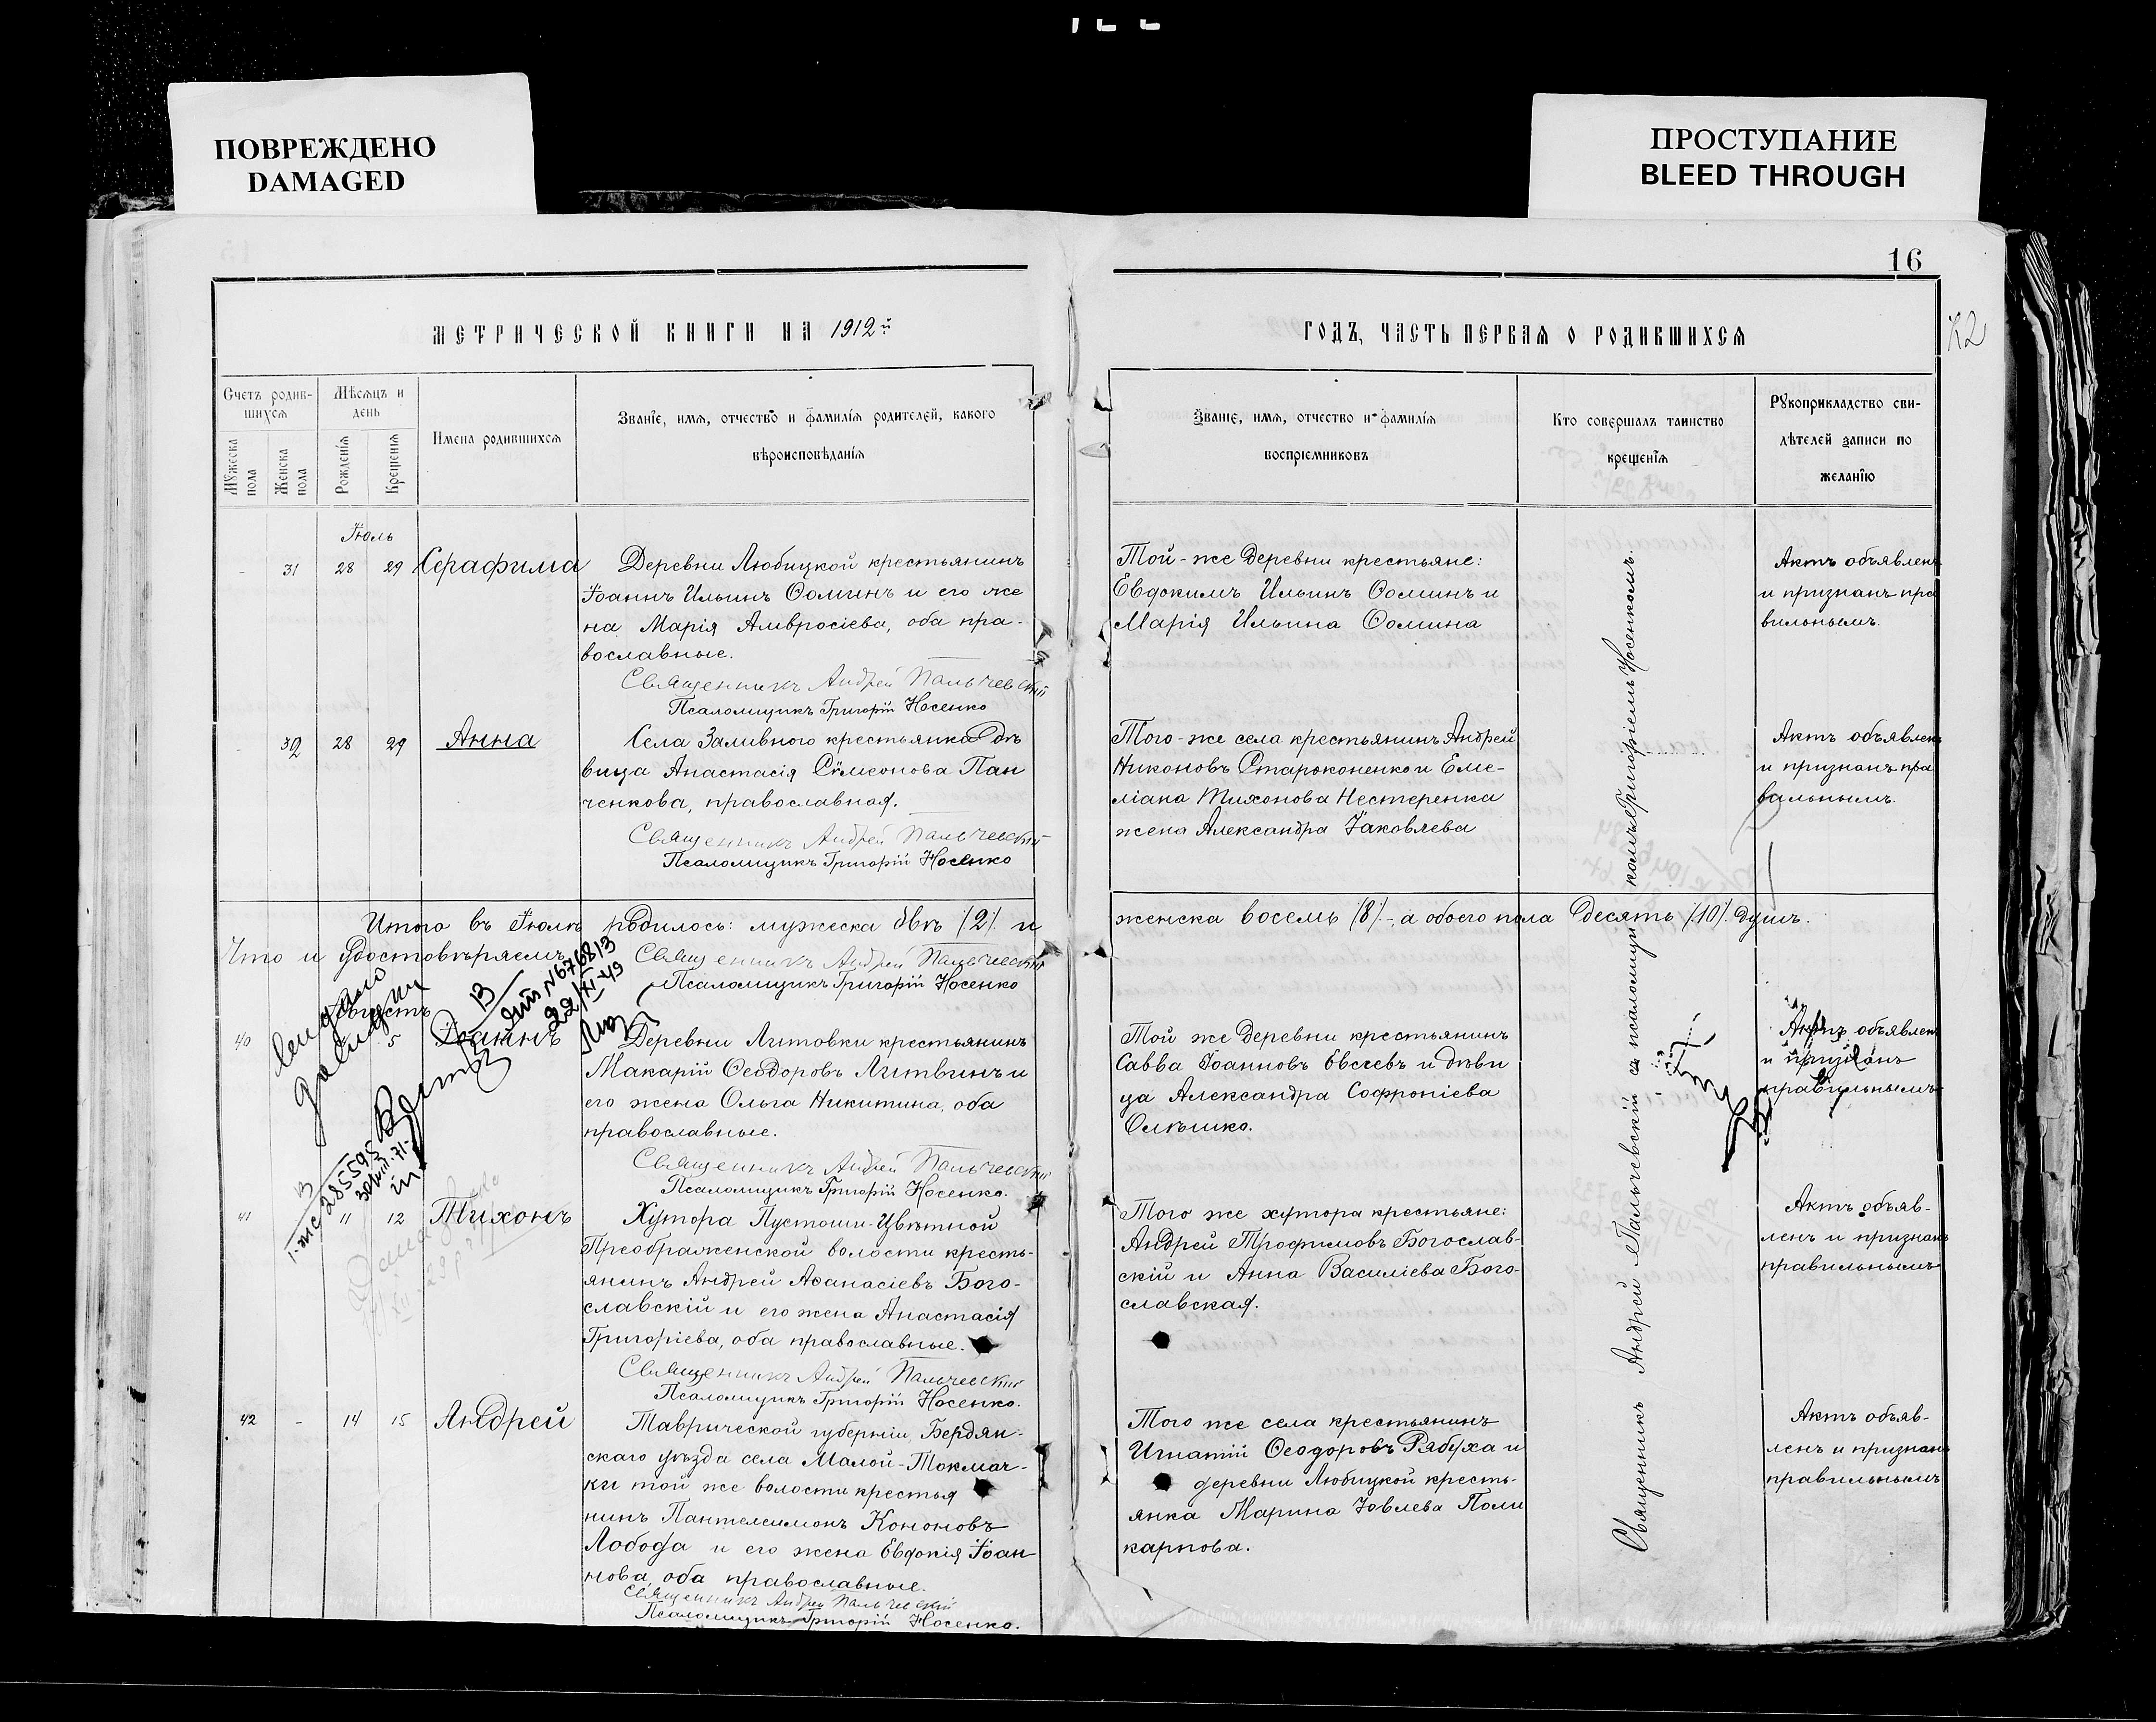 ПОВРЕЖДЕНО
DAMAGED
ПРОСТУПАНИЕ
BLEED THROUGH
16
МЕТРИЧЕСКОЙ КНИГИ НА 1912й
ГОДЪ, ЧАСТЬ ПЕРВАЯ О РОДИВШИХСЯ
Счетъ родив-
шихся
Мѣсяцъ и
день
Мужеска
пола
Женска
пола
Рожденія
Крещенія
Имена родившихся
Званіе, имя, отчество и фамилія родителей, какого
вѣроисповѣданія
Званіе, имя, отчество и фамилія
воспріемниковъ
Кто совершалъ таинство
крещенія
Рукоприкладство сви-
дѣтелей записи по
желанію
Іюль
- 31 28 29 Серафима
Деревни Любицкой крестьянинъ
Іоаннъ Ильинъ Ѳоминъ и его же
на Марія Амвросіева, оба пра-
вославные.
Священникъ Андрей Пальчевскій
Псаломщикъ Григорій Носенко
Той-же деревни крестьяне:
Евдокимъ Ильинъ Ѳоминъ и
Марія Ильина Ѳомина
Актъ объявленъ
и признанъ пра
вильнымъ.
- 32 28 29 Анна
Села Заливного крестьянка дѣ
вица Анастасія Сѵмеонова Пан
ченкова, православная.
Священникъ Андрей Пальчевскій
Псаломщикъ Григорій Носенко
Того-же села крестьянинъ Андрей
Никоновъ Староконенко и Еме-
ліана Тихонова Нестеренка
жена Александра Іаковлева
Актъ объявленъ
и признанъ пра
вильнымъ.
Итого въ Іюлѣ родилось: мужеска двѣ /2/ и
женска восемь /8/ -, а обоего пола десять /10/ душъ.
Что и удостовѣряемъ
Священникъ Андрей Пальчевскій
Псаломщикъ Григорій Носенко
Августъ
40 5 Іоаннъ
Деревни Литовки крестьянинъ
Макарій Ѳеодоровъ Литвинъ и
его жена Ольга Никитина, оба
православные.
Священникъ Андрей Пальчевскій
Псаломщикъ Григорій Носенко.
Той же деревни крестьянинъ
Савва Іоанновъ Евсѣевъ и дѣви
ца Александра Софроніева
Олѣшко.
Актъ объявленъ
и признанъ
правильнымъ
22/XI-49
41 11 12 Тихонъ
Хутора Пустоши-Цвѣтной
Преображенской волости кресть-
янинъ Андрей Аѳанасіевъ Бого-
славскій и его жена Анастасія
Григоріева, оба православные.
Священникъ Андрей Пальчевскій
Псаломщикъ Григорій Носенко.
Того же хутора крестьяне:
Андрей Трофимовъ Богослав-
скій и Анна Василіева Бого-
славская.
Актъ объяв-
ленъ и признанъ
правильнымъ
42 - 14 15 Андрей
Таврической губерніи, Бердян-
скаго уѣзда села Малой-Токмач-
ки той же волости крестья
нинъ Пантелеимонъ Кононовъ
Лобода и его жена Евдокія Іоан-
нова, оба православные.
Священникъ Андрей Пальчевскій
Псаломщикъ Григорій Носенко.
Того же села крестьянинъ
Игнатій Ѳеодоровъ Рябуха и
деревни Любицкой кресть-
янка Марина Іовлева Поли
карпова.
Актъ объяв-
ленъ и признанъ
правильнымъ
Священникъ Андрей Пальчевскій съ псаломщикомъ Григоріемъ Носенкомъ.